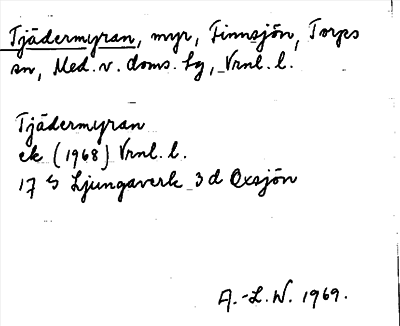 Tjädermyran, myr, Finnsjön, Torps
sn, Med. v. doms. lg, Vrnl. l.
Tjädermyran
ek (1968) Vrnl. l.
17 G Ljungaverk 3d Oxsjön
A.-L. W. 1969.